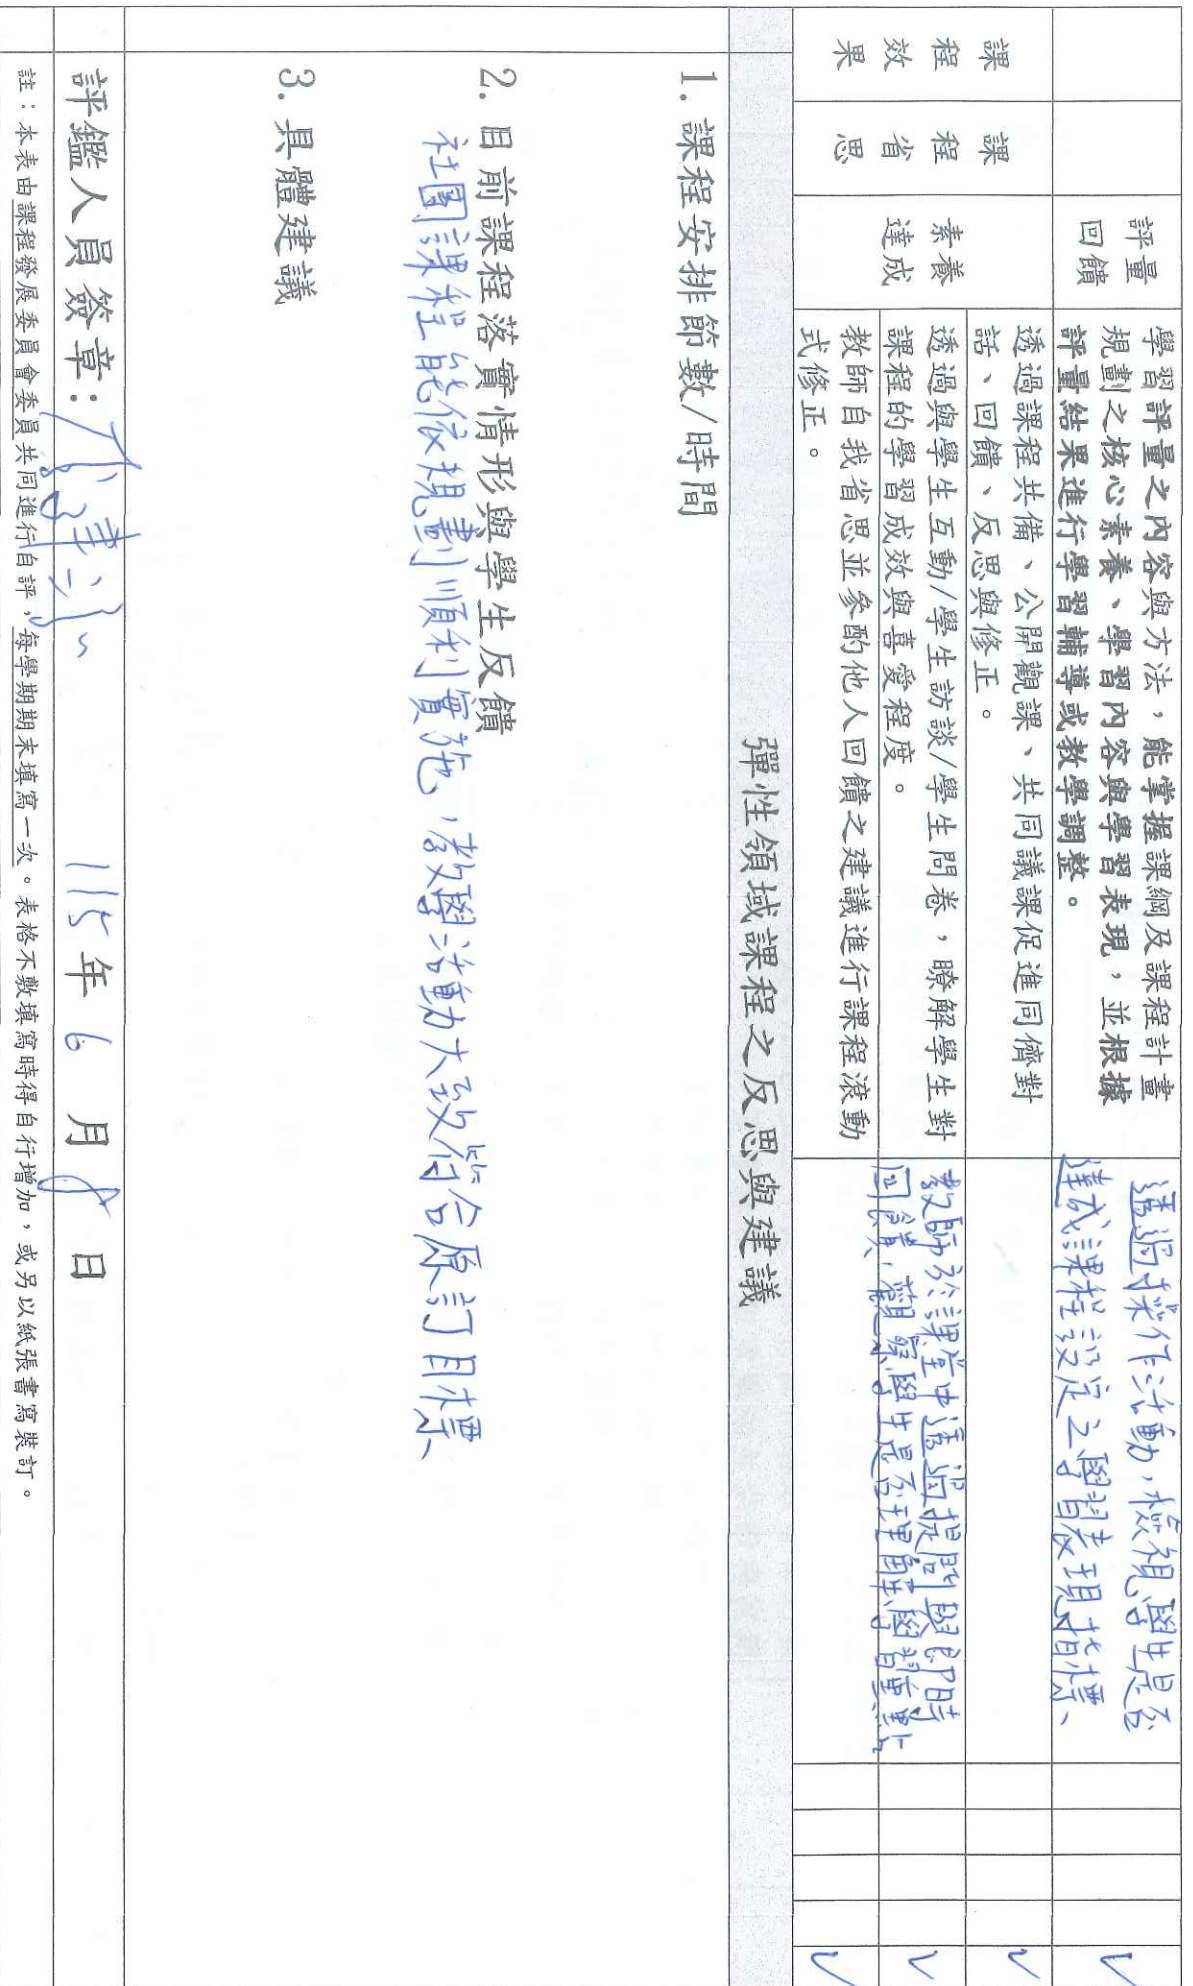 評量
回饋
學習評量之內容與方法，能掌握課綱及課程計畫
規劃之核心素養、學習內容與學習表現，並根據
評量結果進行學習輔導或教學調整。
透過操作活動，檢視學生是否
達成課程設定之學習表現指標、
✓
課程效果
課程省思
素養
達成
透過課程共備、公開觀課、共同議課促進同儕對
話、回饋、反思與修正。
✓
透過與學生互動/學生訪談/學生問卷，瞭解學生對
課程的學習成效與喜愛程度。
教師於課堂中透過提問與即時
回饋，觀察學生是否理解學習重點
✓
教師自我省思並參酌他人回饋之建議進行課程滾動
式修正。
✓
彈性領域課程之反思與建議
1. 課程安排節數/時間
2. 目前課程落實情形與學生反饋
社團課程能依規劃順利實施，教學活動大致符合原訂目標
3. 具體建議
評鑑人員簽章：
115年 6 月 日
註：本表由課程發展委員會委員共同進行自評，每學期期末填寫一次。表格不敷填寫時得自行增加，或另以紙張書寫裝訂。